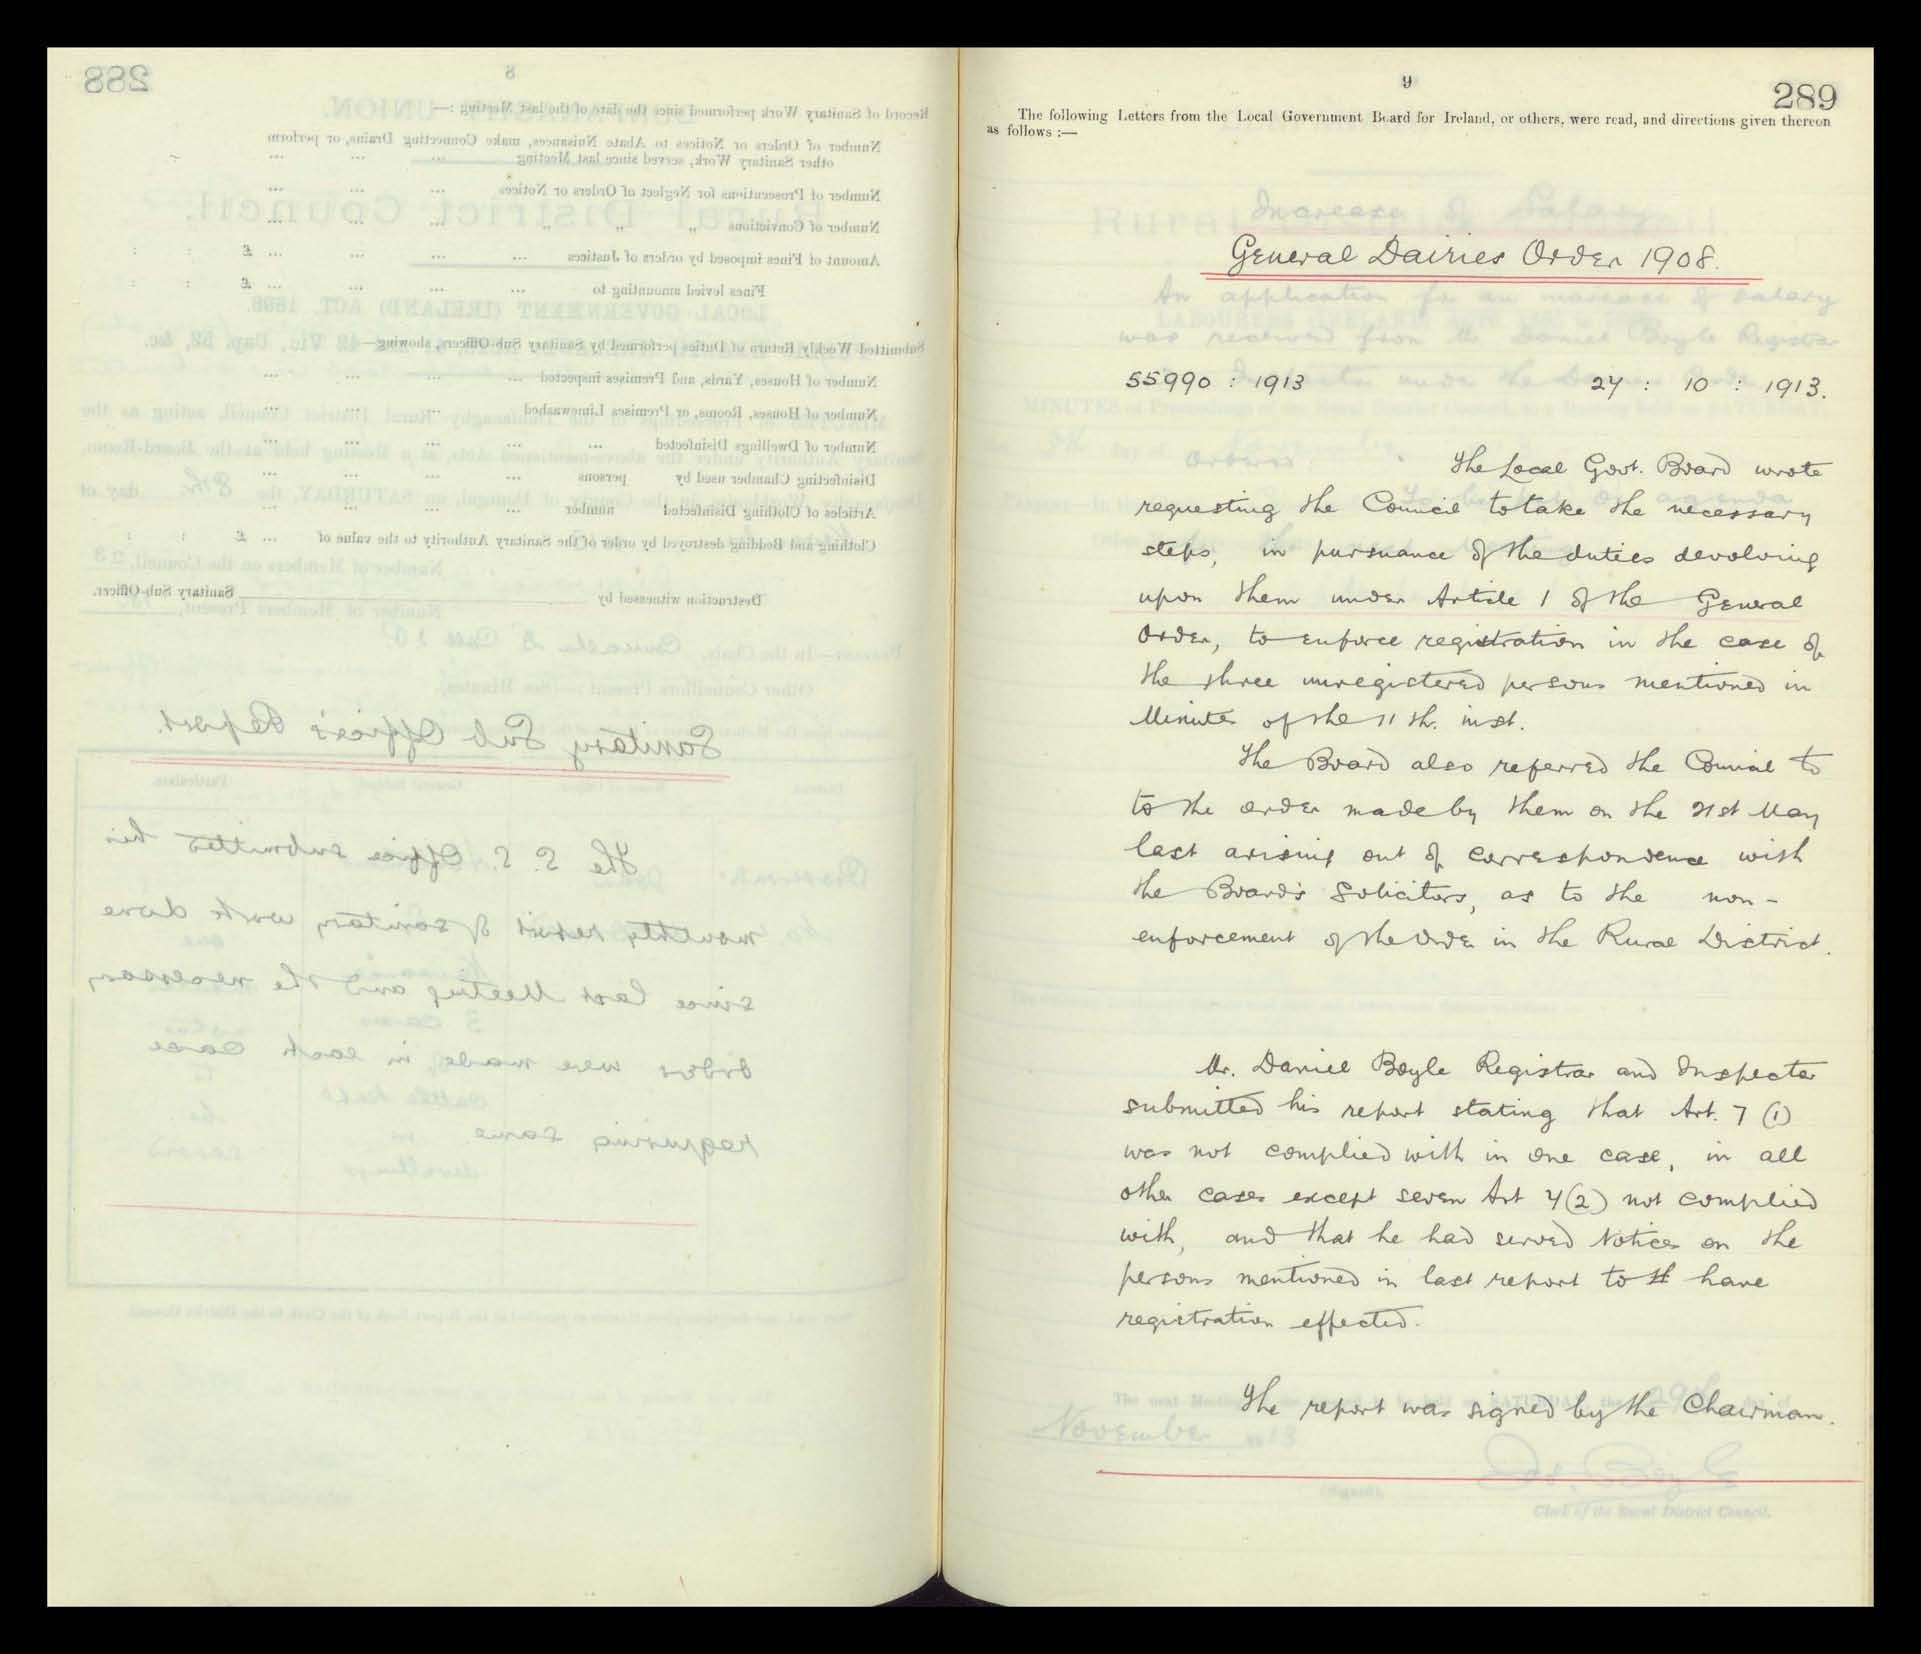 288
8
Record of Sanitary Work performed since the date of the last Meeting :—
Number of Orders or Notices to Abate Nuisances, make Connecting Drains, or perform
other Sanitary Work, served since last Meeting
Number of Prosecutions for Neglect of Orders or Notices
Number of Convictions " " "
Amount of Fines imposed by orders of Justices ... £ : :
Fines levied amounting to ... £ : :
Submitted Weekly Return of Duties performed by Sanitary Sub-Officers, showing—
Number of Houses, Yards, and Premises inspected
Number of Houses, Rooms, or Premises Limewashed
Number of Dwellings Disinfected
Disinfecting Chamber used by persons
Articles of Clothing Disinfected number
Clothing and Bedding destroyed by order of the Sanitary Authority to the value of ... £ : :
Destruction witnessed by Sanitary Sub-Officer.
Sanitary Sub Officer's Report.
The S. S. Officer submitted his
monthly report of sanitary work done
since last Meeting and the necessary
orders were made in each case
requiring same
9
289
The following Letters from the Local Government Board for Ireland, or others, were read, and directions given thereon
as follows :—
General Dairies Order 1908.
55990 : 1913 24 : 10 : 1913.
The Local Govt. Board wrote
requesting the Council to take the necessary
steps, in pursuance of the duties devolving
upon them under Article 1 of the General
Order, to enforce registration in the case of
the three unregistered persons mentioned in
Minutes of the 11th. inst.
The Board also referred the Council to
to the order made by them on the 31st May
last arising out of correspondence with
the Board's Solicitors, as to the non-
enforcement of the Order in the Rural District.
Mr. Daniel Boyle Registrar and Inspector
submitted his report stating that Art. 7 (1)
was not complied with in one case, in all
other cases except seven Art 4(2) not complied
with, and that he had served Notices on the
persons mentioned in last report to have
registration effected.
The report was signed by the Chairman.